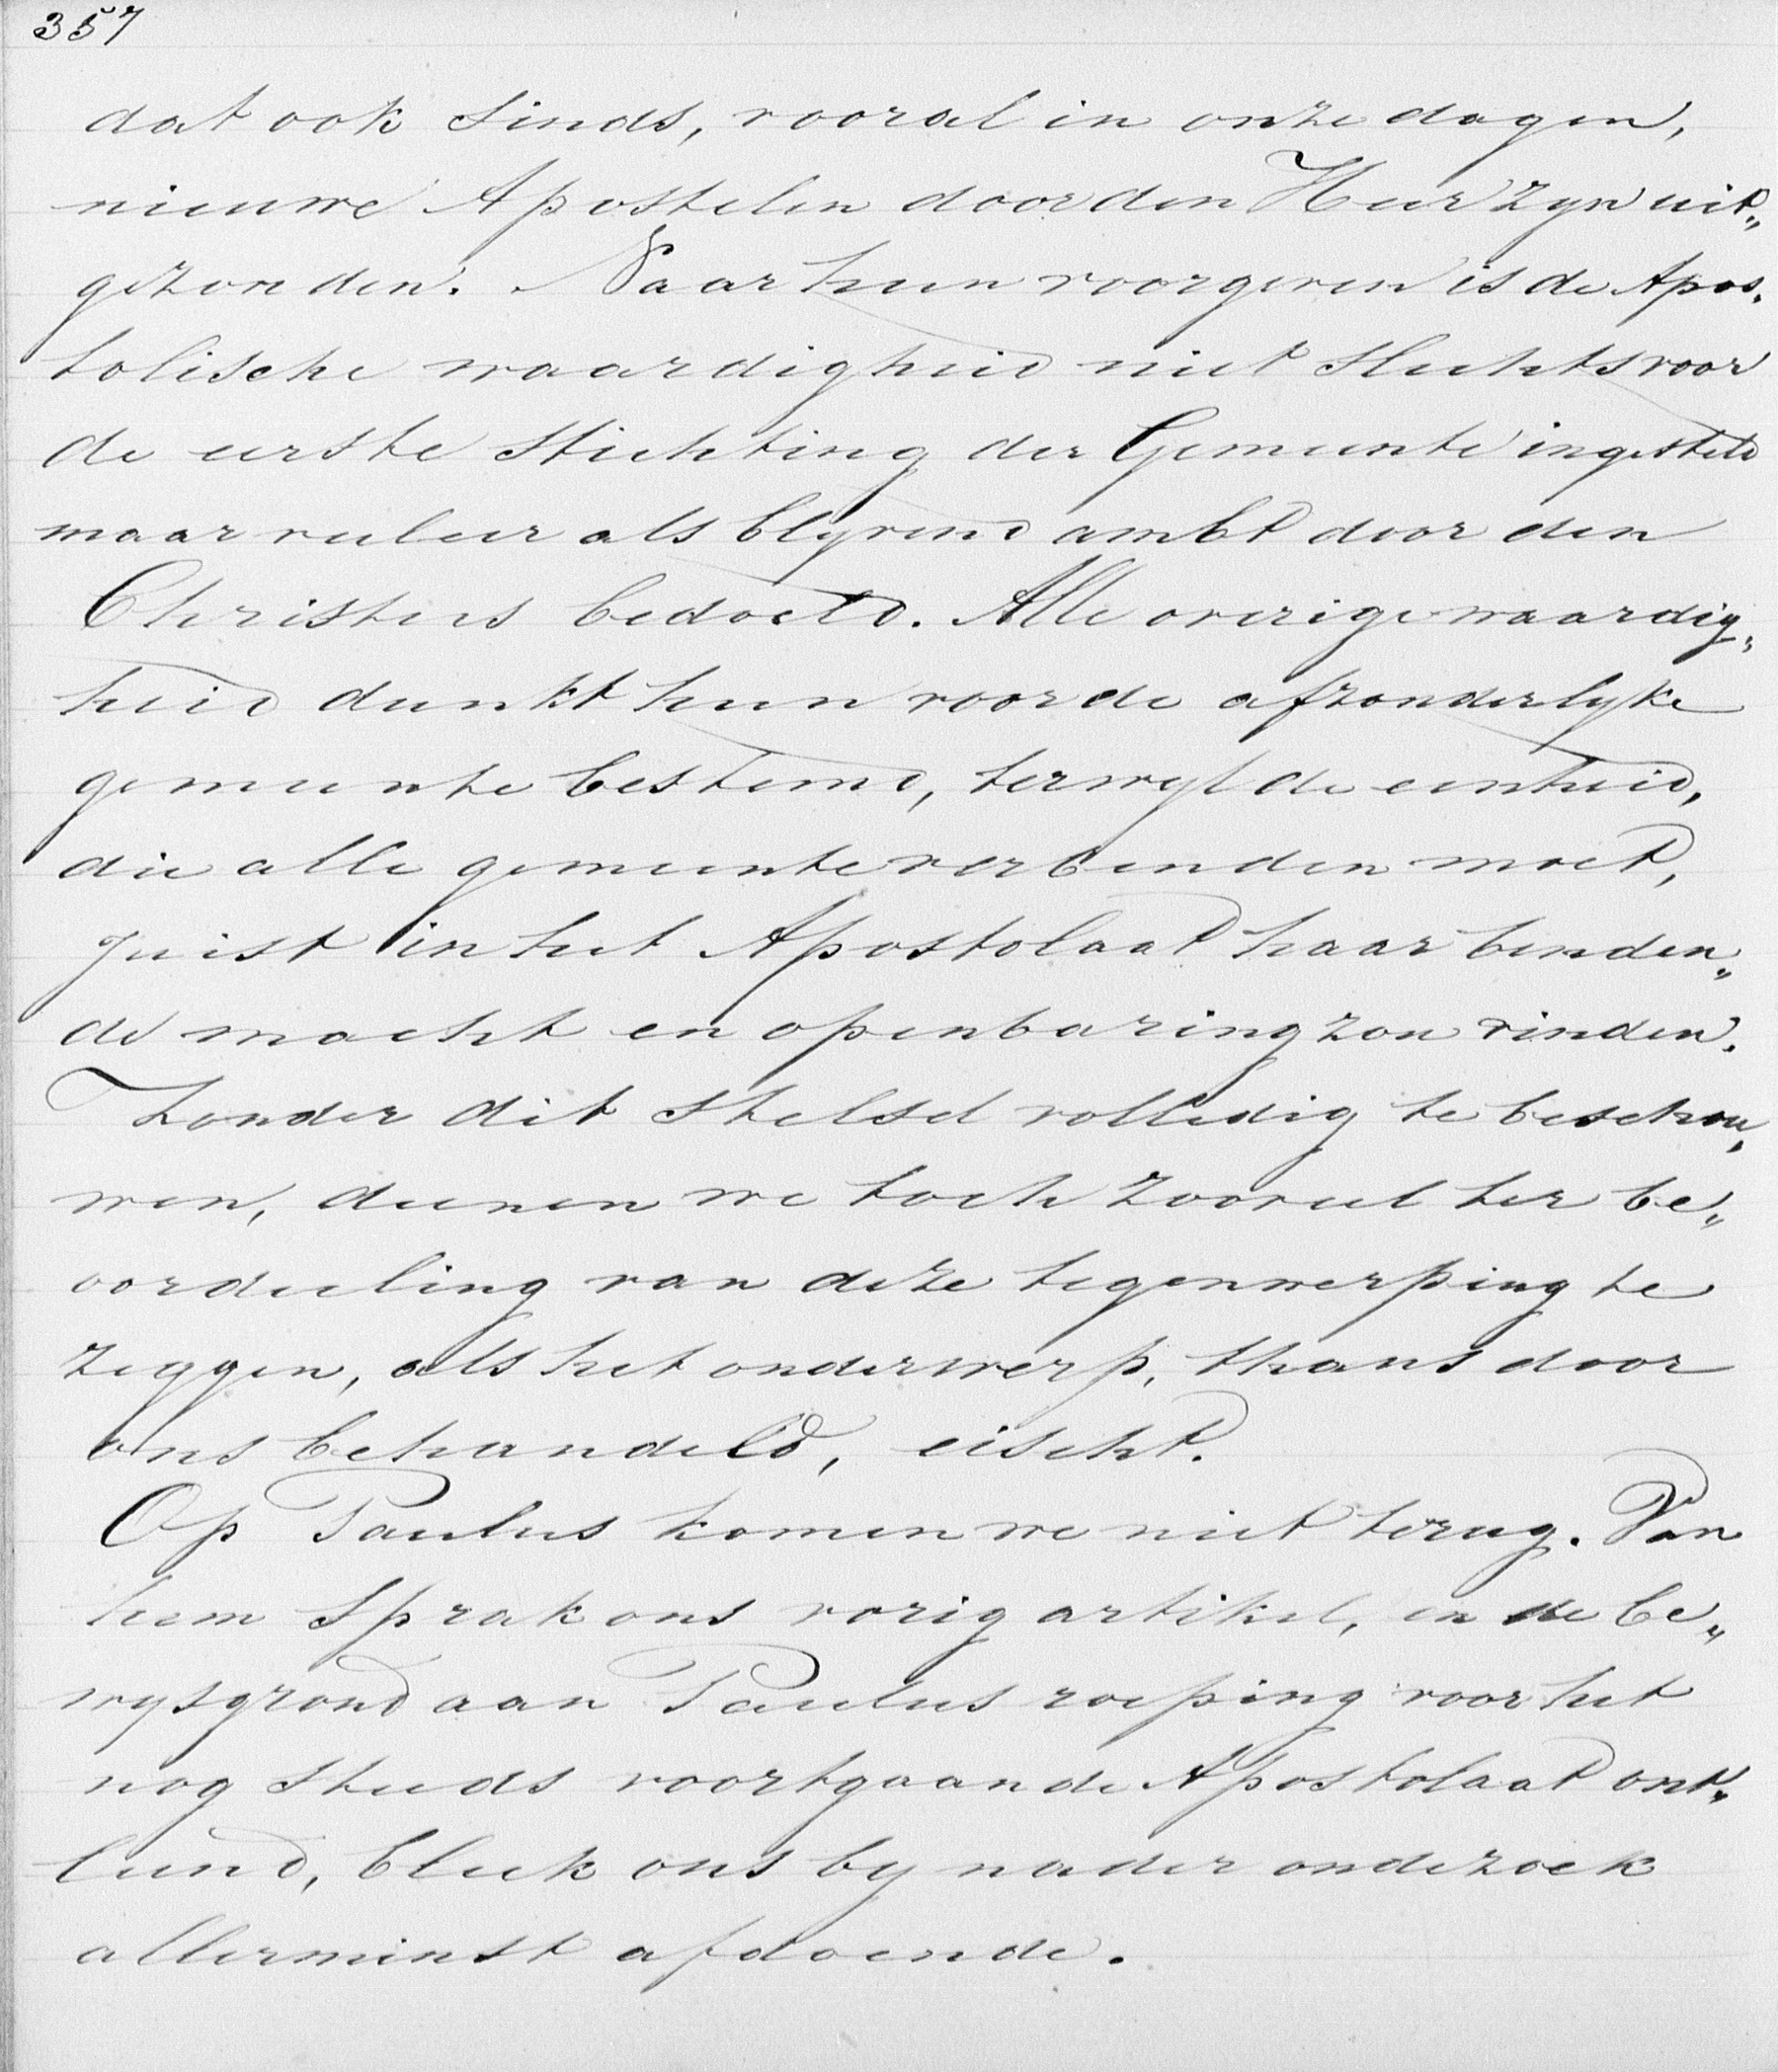 357
dat ook sinds, vooral in onze dagen,
nieuwe Apostelen door den Heer zyn uit„
gezonden. Naar hun voorgeven is de Apos„
tolische waardigheid niet slechts voor
de eerste stichting der Gemeente ingesteld
maar veeleer als blyvend ambt door den
Christus bedoeld. Alle overige waardig„
heid dunkt hun voor de afzonderlyke
gemeente bestemd, terwyl de eenheid,
die alle gemeente verbinden moet,
juist in het Apostolaat haar binden„
de macht en openbaring zou vinden.
Zonder dit stelsel volledig te beschou„
wen, dienen we toch zooveel ter be„
oordeeling van deze tegenwerping te
zeggen, als het onderwerp, thans door
ons behandeld, eischt.
Op Paulus komen we niet terug. Van
hem sprak ons vorig artikel, en de be„
wysgrond aan Paulus roeping voor het
nog steeds voortgaande Apostolaat ont„
leend, bleek ons by nader onderzoek
allerminst afdoende.